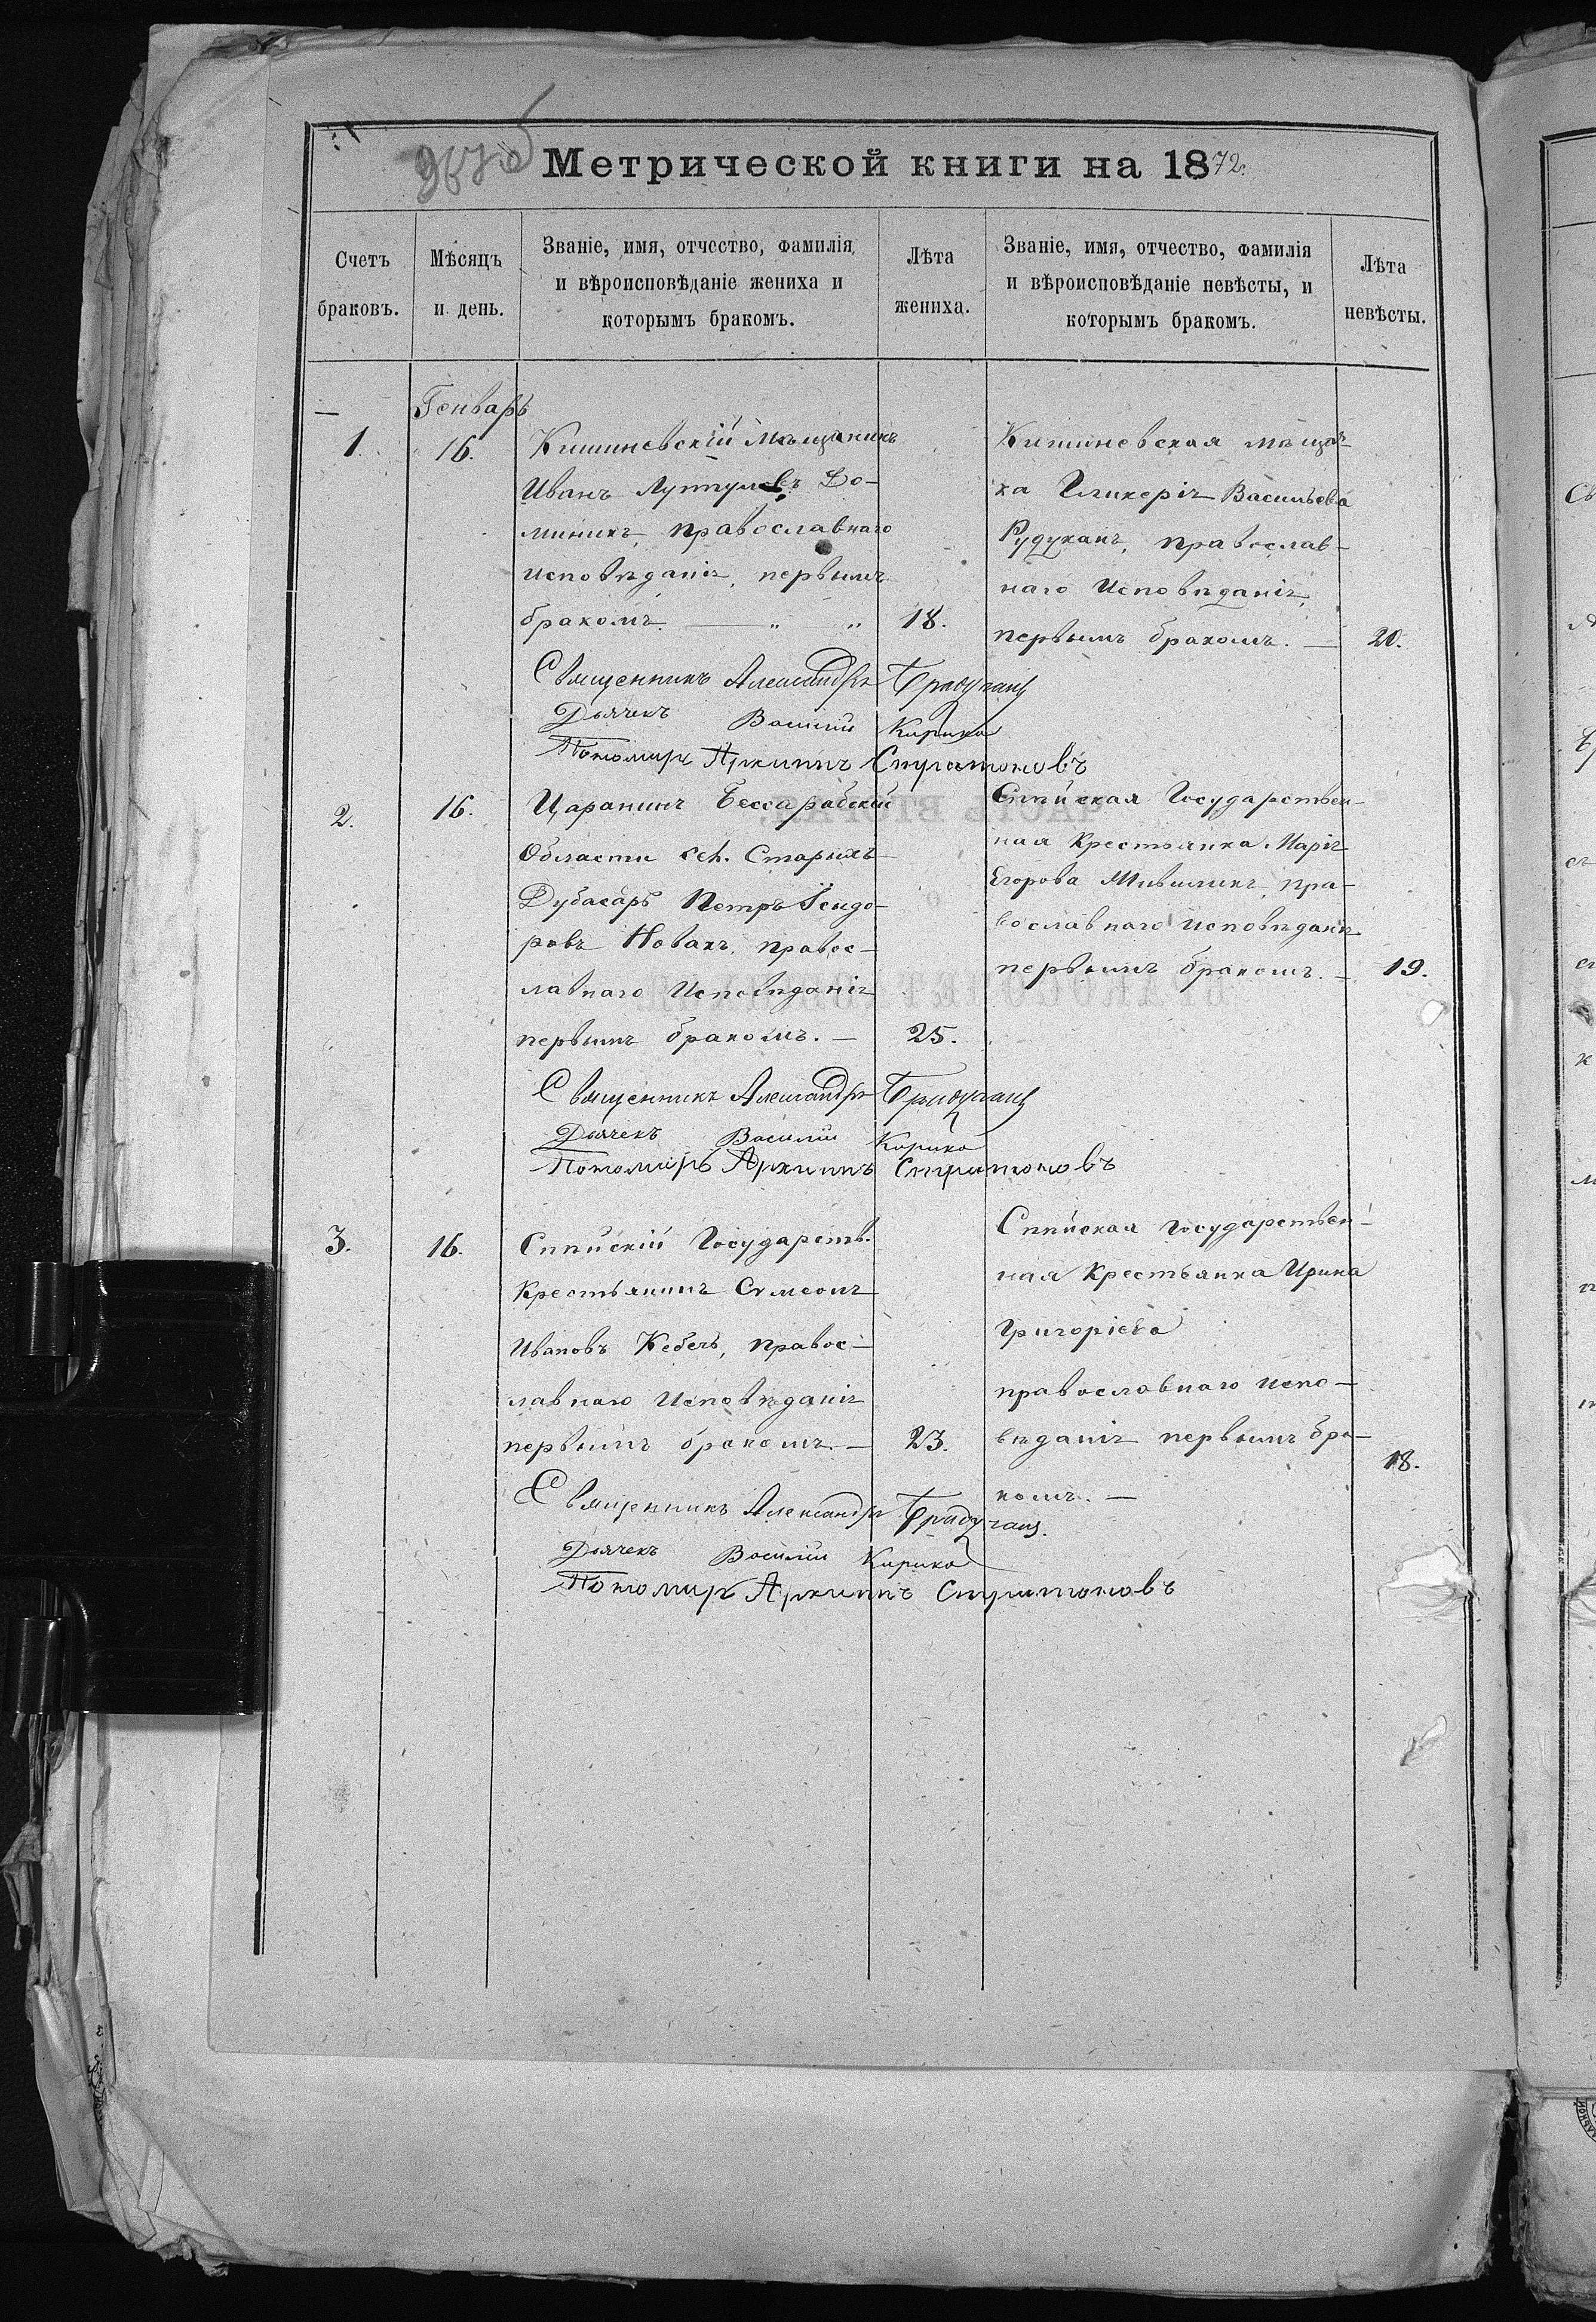 Метрической книги на 1872.
Счетъ браковъ.
Мѣсяцъ и день.
Званіе, имя, отчество, фамилія, и вѣроисповѣданіе жениха и которымъ бракомъ.
Лѣта жениха.
Званіе, имя, отчество, фамилія и вѣроисповѣданіе невѣсты, и которымъ бракомъ.
Лѣта невѣсты.
Генварь
1.
16.
Кишиневскій Мѣщанинъ
Иванъ До-
миникъ, православнаго
исповѣданія, первымъ
бракомъ.
18.
Кишиневская мѣщан-
ка Гликерія Васильева
Рудуканъ, православ-
наго Исповѣданія,
первымъ бракомъ. —
20.
Священникъ Александръ
Дьячекъ Василій Кирика
Пономарь Архиппъ Стратоновъ
2.
16.
Царанинъ Бессарабской
Области сел. Старыхъ
Дубасаръ Петръ Исидо-
ровъ Новакъ, правос-
лавнаго Исповѣданія
первымъ бракомъ. —
25.
Спѣйская Государствен-
ная Крестьянка Марія
Егорова пра-
вославнаго исповѣданія
первымъ бракомъ. —
19.
Священникъ Александръ
Дьячекъ Василій Кирика
Пономарь Архиппъ Стратоновъ
3.
16.
Спѣйскій Государств.
Крестьянинъ Сѵмеонъ
Ивановъ Кебечъ, правос-
лавнаго Исповѣданія
первымъ бракомъ. —
23.
Спѣйская Государствен-
ная Крестьянка Ирина
Григоріева
православнаго испо-
вѣданія первымъ бра-
комъ. —
18.
Священникъ Александръ
Дьячекъ Василій Кирика
Пономарь Архиппъ Стратоновъ